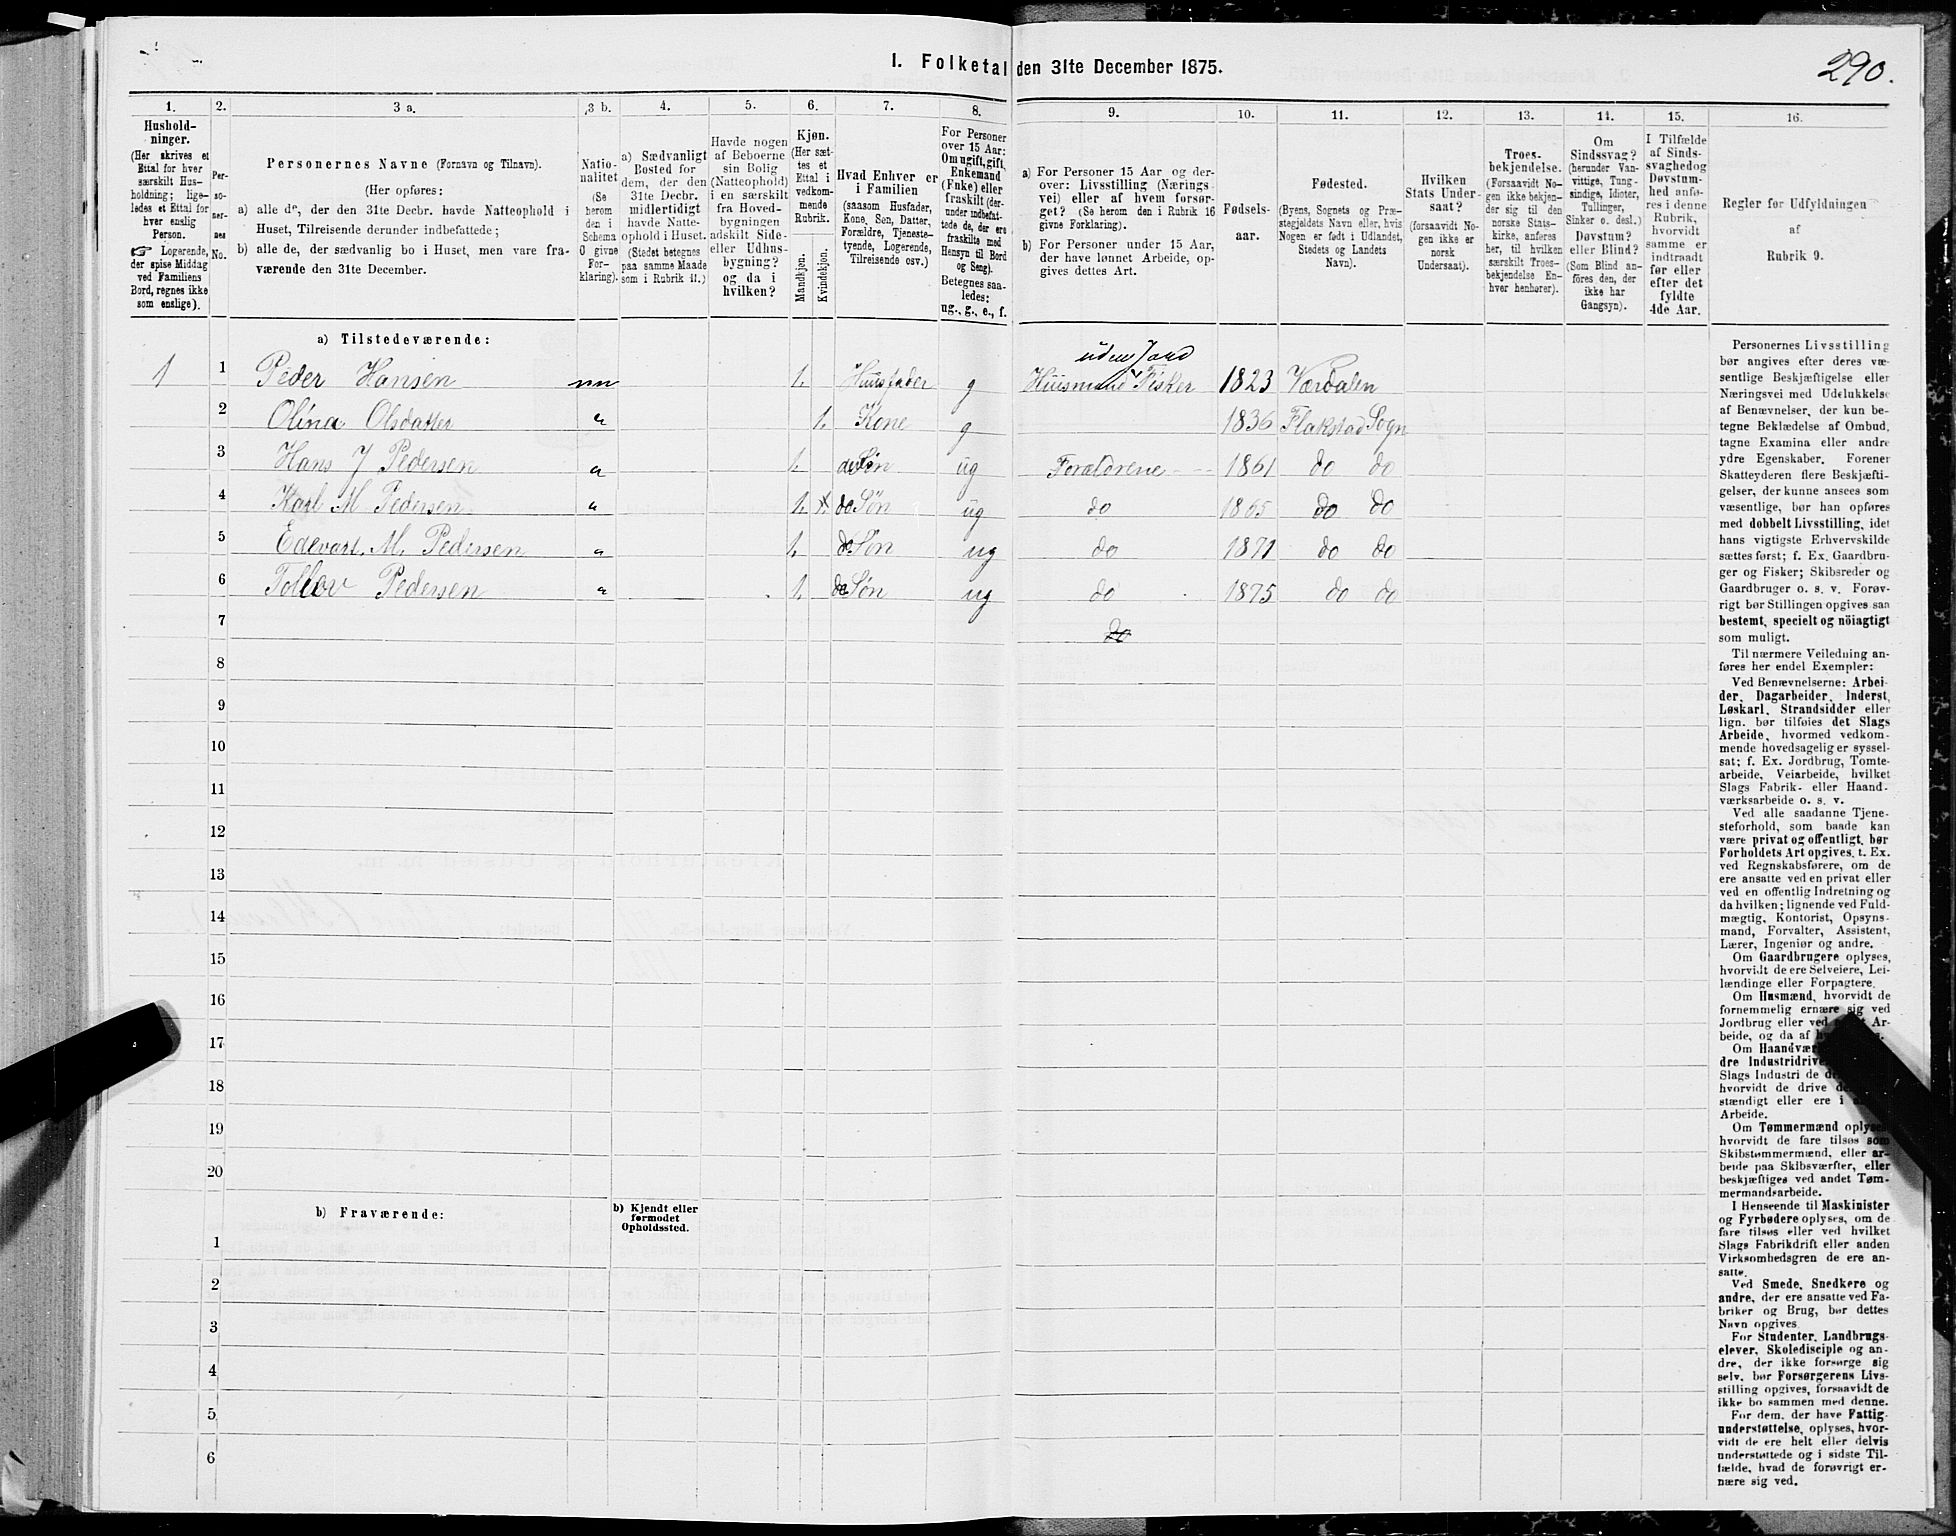 1. Folketal den 31te December 1875.
290.
1.
2.
3 a.
3 b.
4.
5.
6.
7.
8.
9.
10.
11.
12.
13.
14.
15.
16.
Hushold-
ninger.
(Her skrives et
Ettal for hver
særskilt Hus-
holdning; lige-
ledes et Ettal for
hver enslig
Person.
☞ Logerende,
der spise Middag
ved Familiens
Bord, regnes ikke
som enslige).
Per-
so-
ner-
nes
No.
Personernes Navne (Fornavn og Tilnavn).
(Her opføres:
a) alle de, der den 31te Decbr. havde Natteophold i
Huset, Tilreisende derunder indbefattede;
b) alle de, der sædvanlig bo i Huset, men vare fra-
værende den 31te December.
Natio-
nalitet
(Se
herom
den i
Schema
O givne
For-
klaring).
a) Sædvanligt
Bosted for
dem, der den
31te Decbr.
midlertidigt
havde Natte-
ophold i Huset.
(Stedet betegnes
paa samme Maade
som i Rubrik 11.)
Havde nogen
af Beboerne
sin Bolig
(Natteophold)
i en særskilt
fra Hoved-
bygningen
adskilt Side-
eller Udhus-
bygning?
og da i
hvilken?
Kjøn.
(Her sæt-
tes et
Ettal i
vedkom-
mende
Rubrik.
Mandkjøn.
Kvindekjøn.
Hvad Enhver er
i Familien
(saasom Husfader,
Kone, Søn, Datter,
Forældre, Tjeneste-
tyende, Logerende,
Tilreisende osv.)
For Personer
over 15 Aar:
Om ugift, gift,
Enkemand
(Enke) eller
fraskilt (der-
under indbefat-
tede de, der ere
fraskilte med
Hensyn til Bord
og Seng).
Betegnes saa-
ledes:
ug., g., e., f.
a) For Personer 15 Aar og der-
over: Livsstilling (Nærings-
vei) eller af hvem forsør-
get? (Se herom den i Rubrik 16
givne Forklaring).
b) For Personer under 15 Aar,
der have lønnet Arbeide, op-
gives dettes Art.
Fødsels-
aar.
Fødested.
(Byens, Sognets og Præ-
stegjeldets Navn eller, hvis
Nogen er født i Udlandet,
Stedets og Landets
Navn).
Hvilken
Stats Under-
saat?
(forsaavidt No-
gen ikke er
norsk
Undersaat).
Troes-
bekjendelse.
(Forsaavidt No-
gen ikke bekjen-
der sig til den
norske Stats-
kirke, anføres
her, til hvilken
særskilt Troes-
bekjendelse En-
hver henhører).
Om
Sindssvag?
(herunder Van-
vittige, Tung-
sindige, Idioter,
Tullinger,
Sinker o. desl.)
Døvstum?
eller Blind?
(Som Blind an-
føres den, der
ikke har
Gangsyn).
I Tilfælde
af Sinds-
svaghed og
Døvstum-
hed anfø-
res i denne
Rubrik,
hvorvidt
samme er
indtraadt
før eller
efter det
fyldte
4de Aar.
Regler for Udfyldningen
af
Rubrik 9.
a) Tilstedeværende:
1 1 Peder Hansen nn 1. Huusfader g Huusmand uden Jord Fisker 1823 Værdalen
2 Olina Olsdatter " 1. Kone g 1836 Flakstad Sogn
3 Hans J Pedersen " 1. des Søn ug Forældrene 1861 do do
4 Karl M Pedersen " 1. do Søn ug do 1865 do do
5 Edevart. M. Pedersen " 1. do Søn ug do 1871 do do
6 Tollov Pedersen " 1. do Søn ug do 1875 do do
7 do
8
9
10
11
12
13
14
15
16
17
18
19
20
b) Fraværende:
b) Kjendt eller
formodet
Opholdssted.
1
2
3
4
5
6
Personernes Livsstilling
bør angives efter deres væ-
sentlige Beskjæftigelse eller
Næringsvei med Udelukkelse
af Benævnelser, der kun be-
tegne Beklædelse af Ombud,
tagne Examina eller andre
ydre Egenskaber. Forener
Skatteyderen flere Beskjæfti-
gelser, der kunne ansees som
væsentlige, bør han opføres
med dobbelt Livsstilling, idet
hans vigtigste Erhvervskilde
sættes først; f. Ex. Gaardbru-
ger og Fisker; Skibsreder og
Gaardbruger o. s. v. Forøv-
rigt bør Stillingen opgives saa
bestemt, specielt og nöiagtigt
som muligt.
Til nærmere Veiledning an-
føres her endel Exempler:
Ved Benævnelserne: Arbei-
der, Dagarbeider, Inderst,
Løskarl, Strandsidder eller
lign. bør tilføies det Slags
Arbeide, hvormed vedkom-
mende hovedsagelig er syssel-
sat; f. Ex. Jordbrug, Tomte-
arbeide, Veiarbeide, hvilket
Slags Fabrik- eller Haand-
værksarbeide o. s. v.
Ved alle saadanne Tjene-
steforhold, som baade kan
være privat og offentligt, bør
Forholdets Art opgives, t. Ex.
ved Regnskabsførere, om de
ere ansatte ved en privat eller
ved en offentlig Indretning og
da hvilken; lignende ved Fuld-
mægtig, Kontorist, Opsyns-
mand, Forvalter, Assistent,
Lærer, Ingeniør og andre.
Om Gaardbrugere oplyses,
hvorvidt de ere Selveiere, Lei-
lændinge eller Forpagtere.
Om Husmænd, hvorvidt de
fornemmelig ernære sig ved
Jordbrug eller ved Ar-
beide, og da af
Om Haandvær
dre Industridrive
Slags Industri de
hvorvidt de drive
stændigt eller ere i
Arbeide.
Om Tømmermænd oplyses
hvorvidt de fare tilsøs som
Skibstømmermænd, eller ar-
beide paa Skibsværfter, eller
beskjæftiges ved andet Tøm-
mermandsarbeide.
I Henseende til Maskinister
og Fyrbødere oplyses, om de
fare tilsøs eller ved hvilket
Slags Fabrikdrift eller anden
Virksomhedsgren de ere an-
satte.
Ved Smede, Snedkere og
andre, der ere ansatte ved Fa-
briker og Brug, bør dettes
Navn opgives.
For Studenter, Landbrugs-
elever, Skoledisciple og an-
dre, der ikke forsørge sig
selv, bør Forsørgerens Livs-
stilling opgives, forsaavidt de
ikke bo sammen med denne.
For dem, der have Fattig-
understøttelse, oplyses, hvor-
vidt de ere helt eller delvis
understøttede og i sidste Til-
fælde, hvad de forøvrigt er-
nære sig ved.